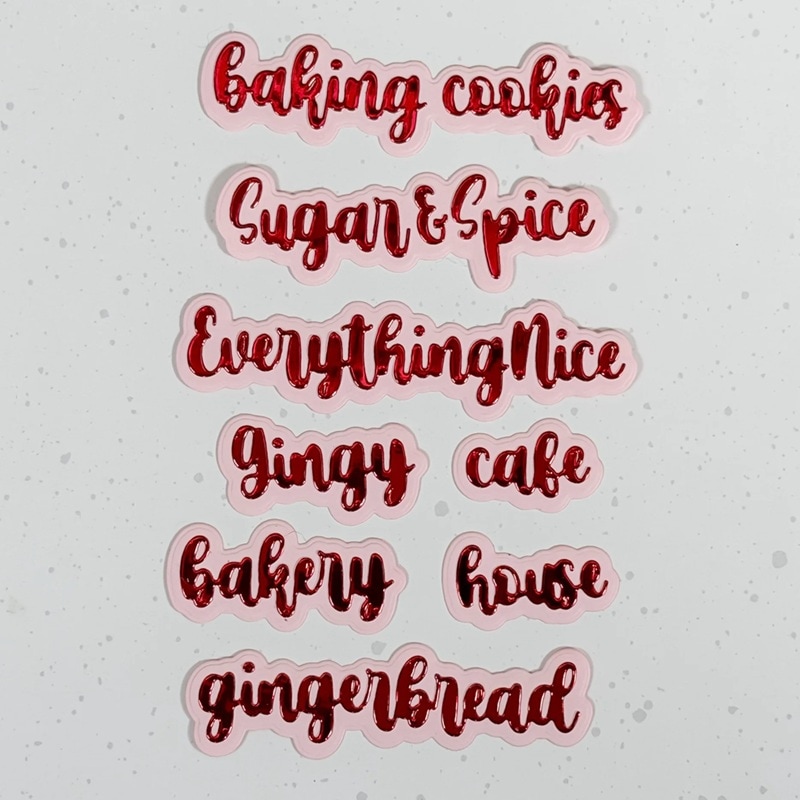 baking cookies
Sugar & Spice
Everything Nice
gingy cafe
bakery house
gingerbread